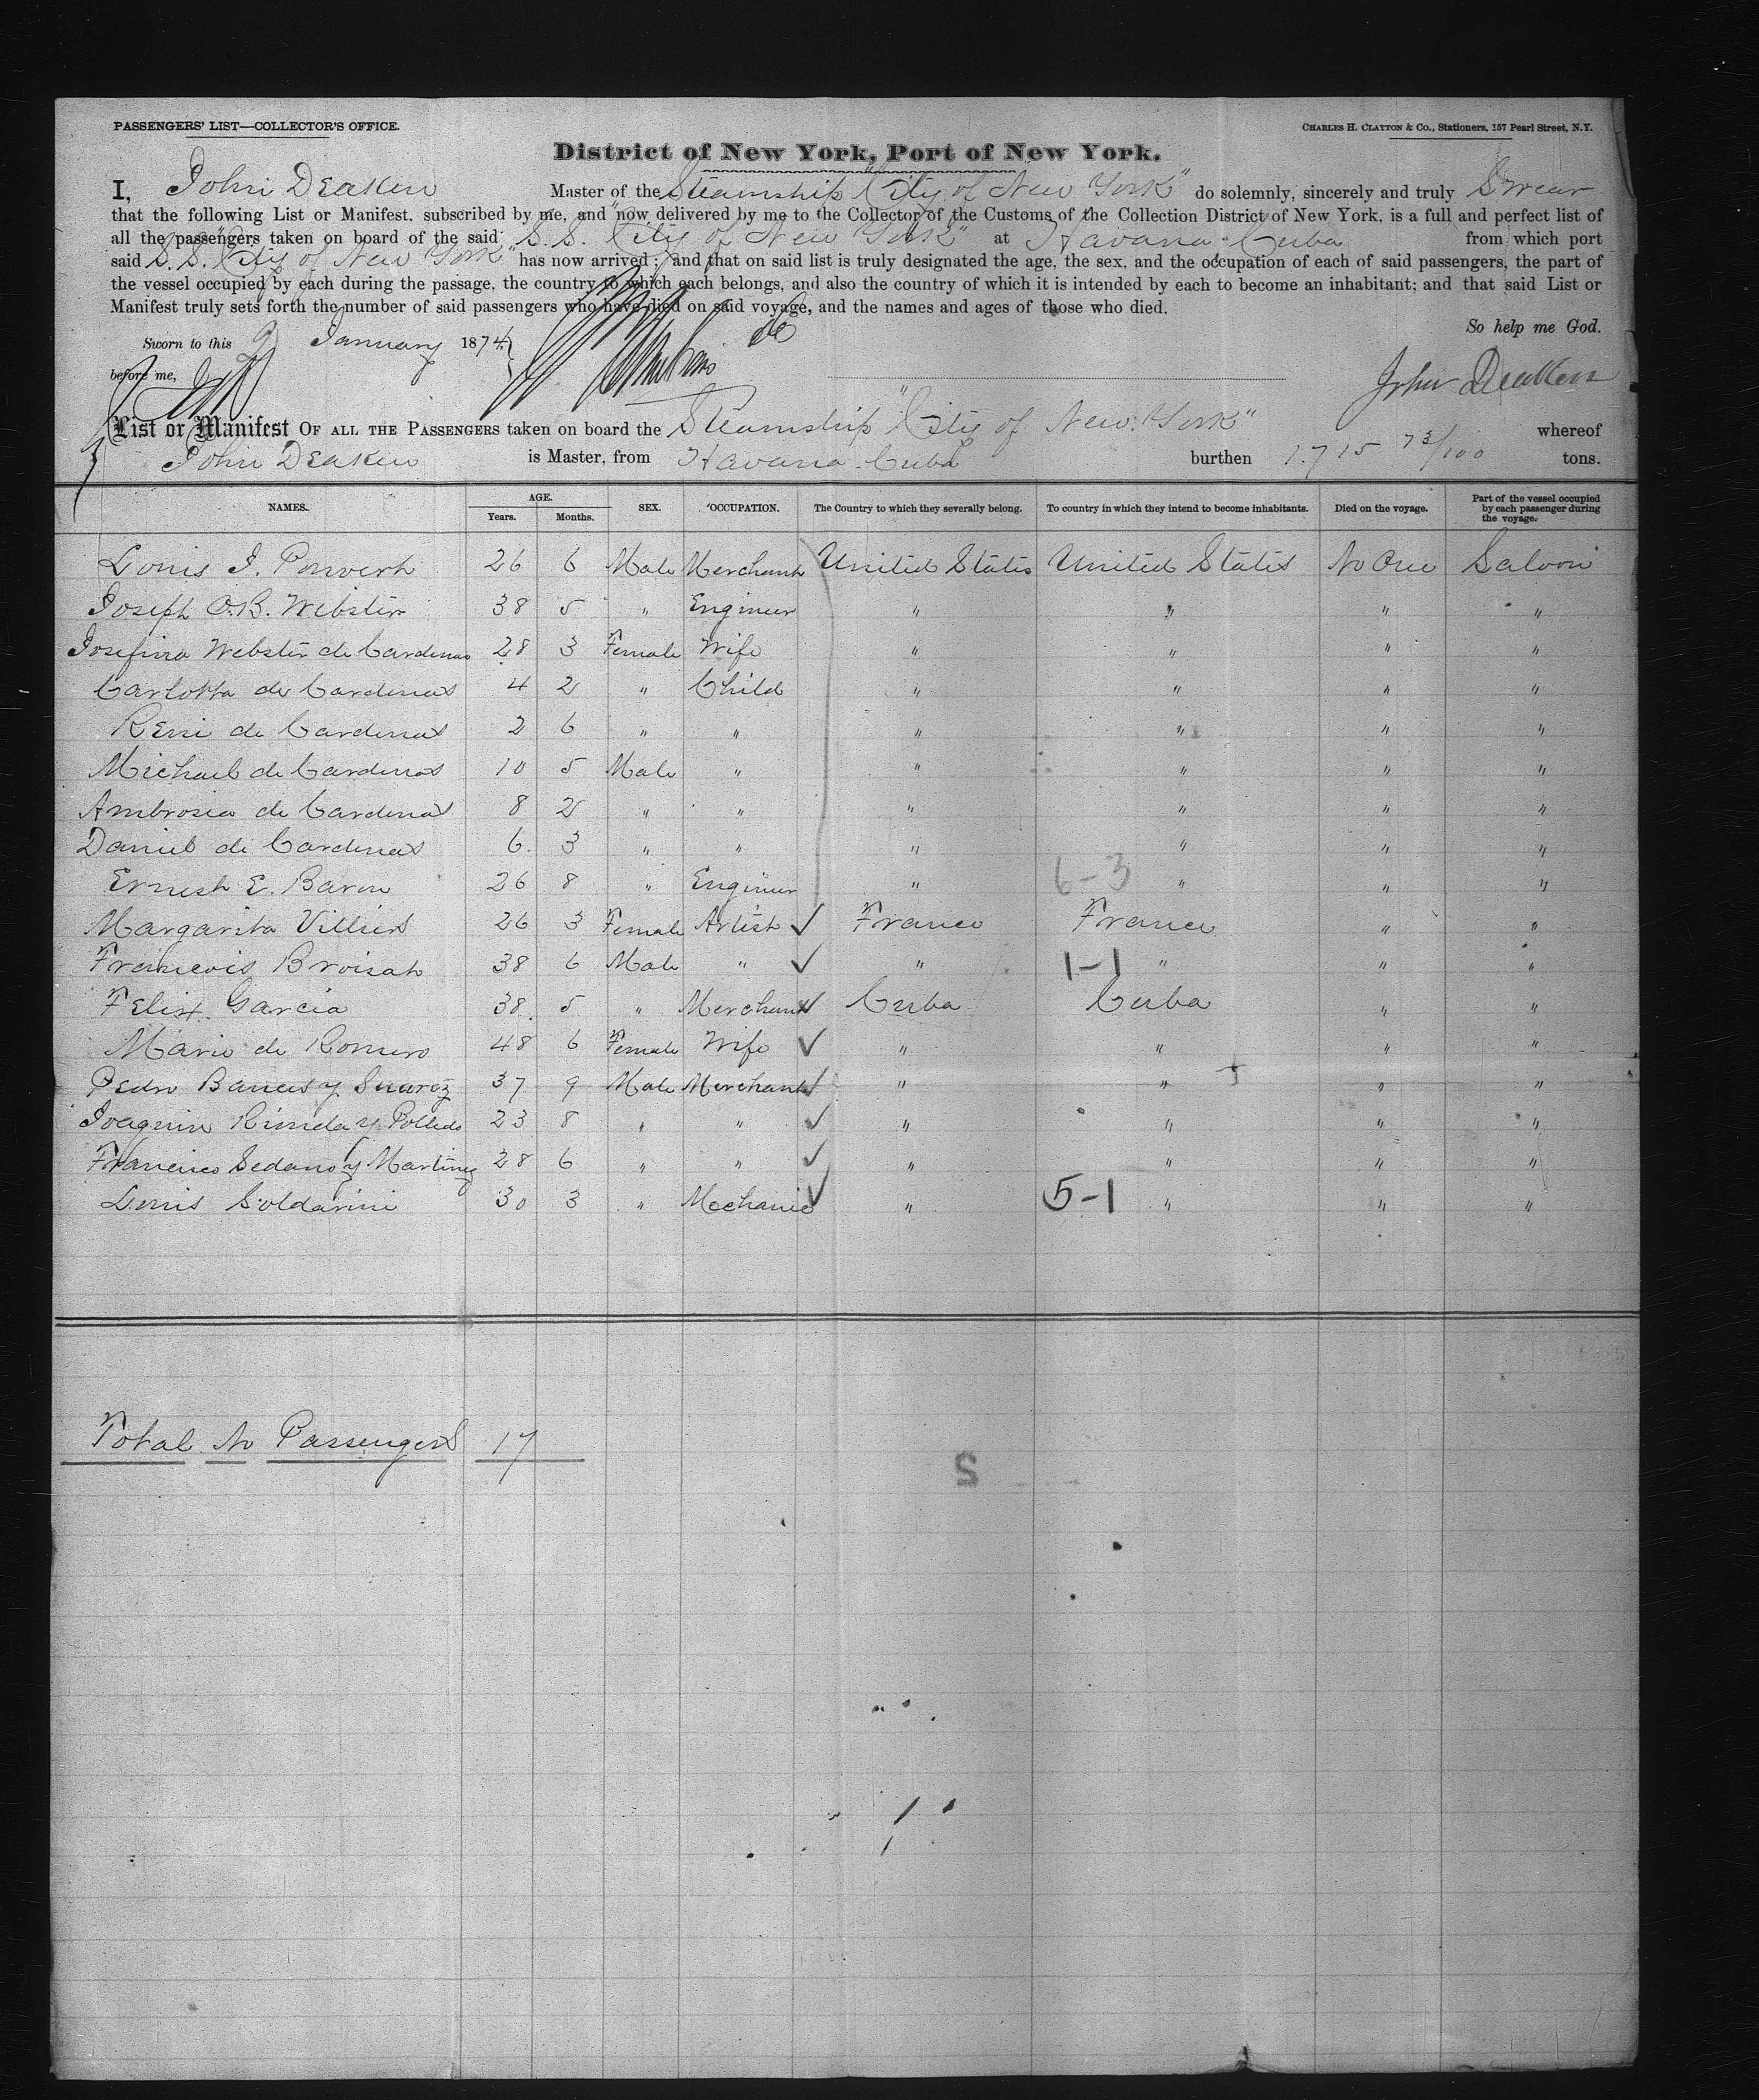 PASSENGERS' LIST—COLLECTOR'S OFFICE.
CHARLES H. CLAYTON & CO., Stationers, 157 Pearl Street, N.Y.
District of New York, Port of New York.
I, John Deaken Master of the Steamship "City of New York" do solemnly, sincerely and truly Swear
that the following List or Manifest, subscribed by me, and now delivered by me to the Collector of the Customs of the Collection District of New York, is a full and perfect list of
all the passengers taken on board of the said S.S. "City of New York" at Havana Cuba from which port
said S.S. "City of New York" has now arrived; and that on said list is truly designated the age, the sex, and the occupation of each of said passengers, the part of
the vessel occupied by each during the passage, the country to which each belongs, and also the country of which it is intended by each to become an inhabitant; and that said List or
Manifest truly sets forth the number of said passengers who have died on said voyage, and the names and ages of those who died.
So help me God.
Sworn to this 9 January 1874
before me,
John Deaken
List or Manifest OF ALL THE PASSENGERS taken on board the Steamship "City of New York" whereof
John Deaken is Master, from Havana Cuba burthen 1715 73/100 tons.
NAMES. AGE. Years. Months. SEX. OCCUPATION. The Country to which they severally belong. To country in which they intend to become inhabitants. Died on the voyage. Part of the vessel occupied by each passenger during the voyage.
Louis J. 26 6 Male Merchant United States United States No One Saloon
Joseph O.B. Webster 38 5 " Engineer " " " "
Josefina Webster de Cardenas 28 3 Female Wife " " " "
Carlotta de Cardenas 4 2 " Child " " " "
Reni de Cardenas 2 6 " " " " " "
Michael de Cardenas 10 5 Male " " " " "
Ambrosia de Cardenas 8 2 " " " " " "
Daniel de Cardenas 6 3 " " " " " "
Ernest E. Baron 26 8 " Engineer " 6-3 " " "
Margarita Villiers 26 3 Female Artist ✓ France France " "
Francois 38 6 Male " ✓ " 1-1 " " "
Felix Garcia 38 5 " Merchant ✓ Cuba Cuba " "
Marie de Romero 48 6 Female Wife ✓ " " " "
Pedro Bances y Suarez 37 9 Male Merchant ✓ " " " "
Joaquin y 23 8 " " ✓ " " " "
Francisco Sedano y Martinez 28 6 " " ✓ " " " "
Louis Soldarini 30 3 " Mechanic ✓ " 5-1 " " "
Total No Passengers 17